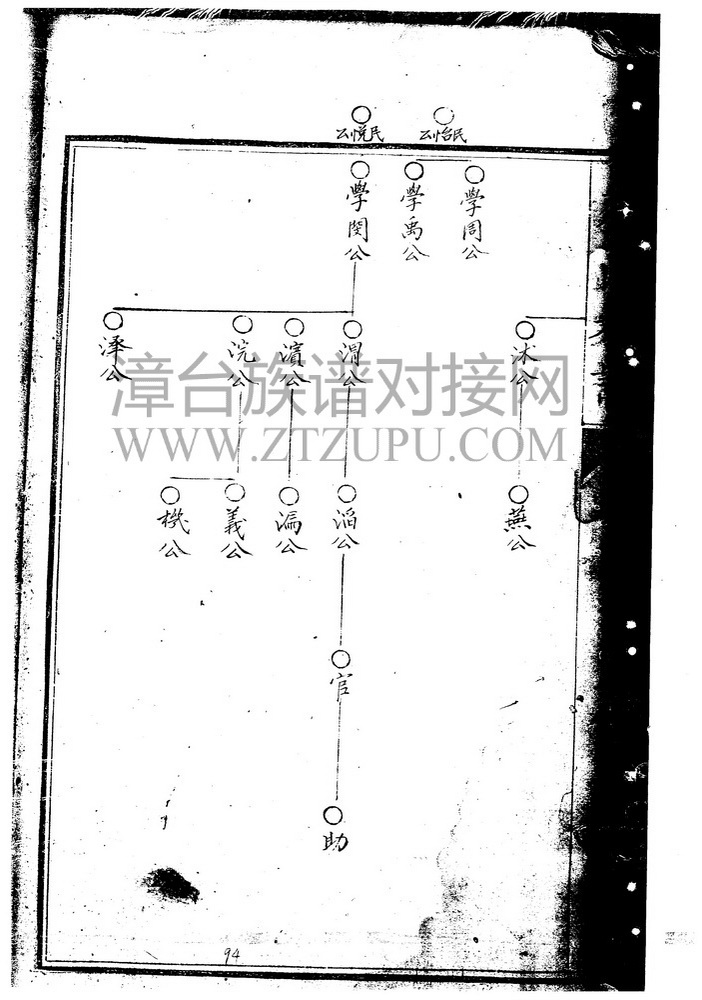 公悦民
公怡民
學閔公
學禹公
學周公
澤公
浣公
濵公
渭公
沭公
漳台族谱对接网
WWW.ZTZUPU.COM
機公
義公
漏公
滔公
蕪公
官
助
94